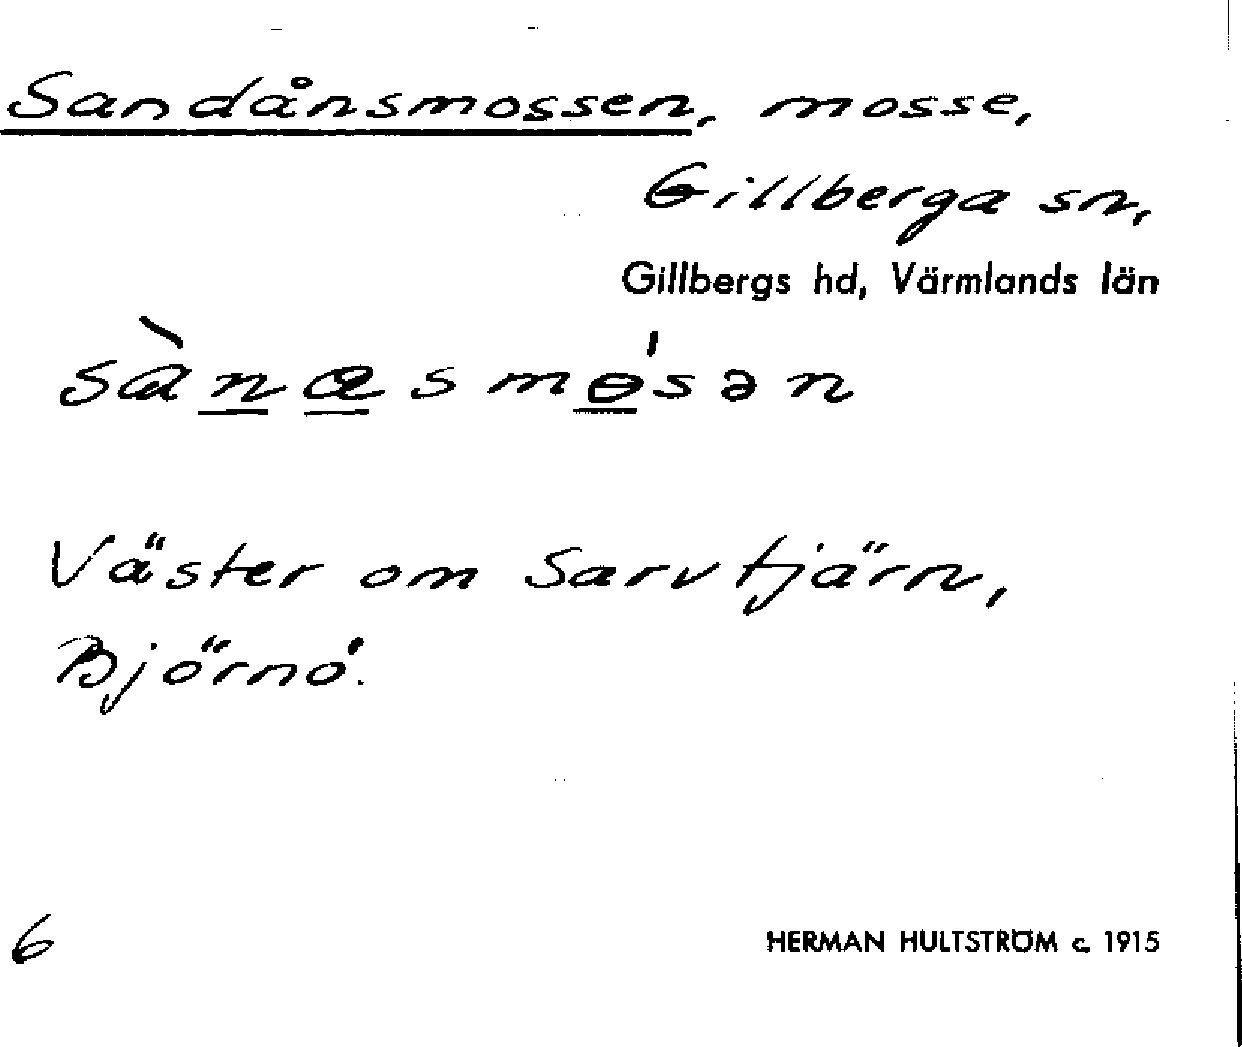 Sandånsmossen, mosse,
Gillberga sn,
Gillbergs hd, Värmlands län
sànæsmɵ́sən
Väster om Sarvtjärn,
Björnö.
6
HERMAN HULTSTRÖM c. 1915